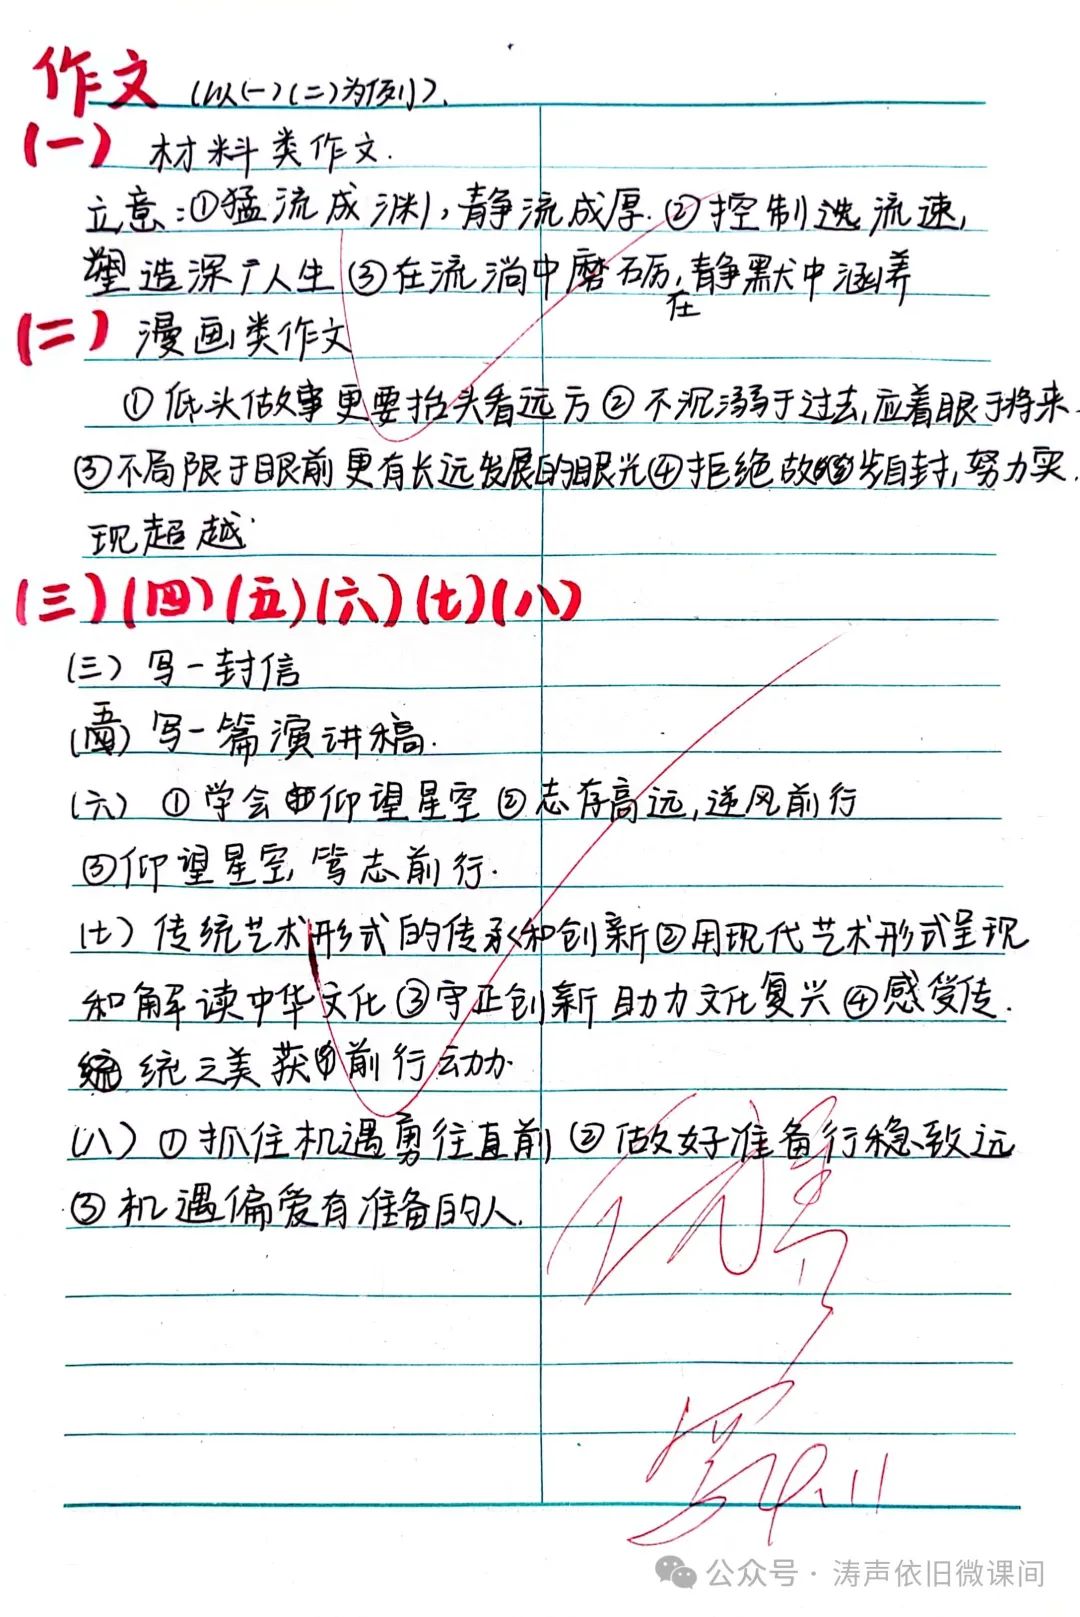 作文 (以(一)(二)为例).
(一) 材料类作文.
立意:①猛流成渊,静流成厚.②控制选流速,
塑造深广人生③在流淌中磨砺,在静默中涵养
(二) 漫画类作文
①低头做事更要抬头看远方②不沉溺于过去,应着眼于将来
③不局限于眼前更有长远发展的眼光④拒绝故步自封,努力实
现超越.
(三)(四)(五)(六)(七)(八)
(三) 写一封信
(五) 写一篇演讲稿.
(六) ①学会仰望星空②志存高远,逆风前行
③仰望星空,笃志前行.
(七) 传统艺术形式的传承和创新②用现代艺术形式呈现
和解读中华文化③守正创新 助力文化复兴④感受传
统之美 获前行动力.
(八) ①抓住机遇勇往直前②做好准备行稳致远
③机遇偏爱有准备的人.
优
4.11
公众号·涛声依旧微课间